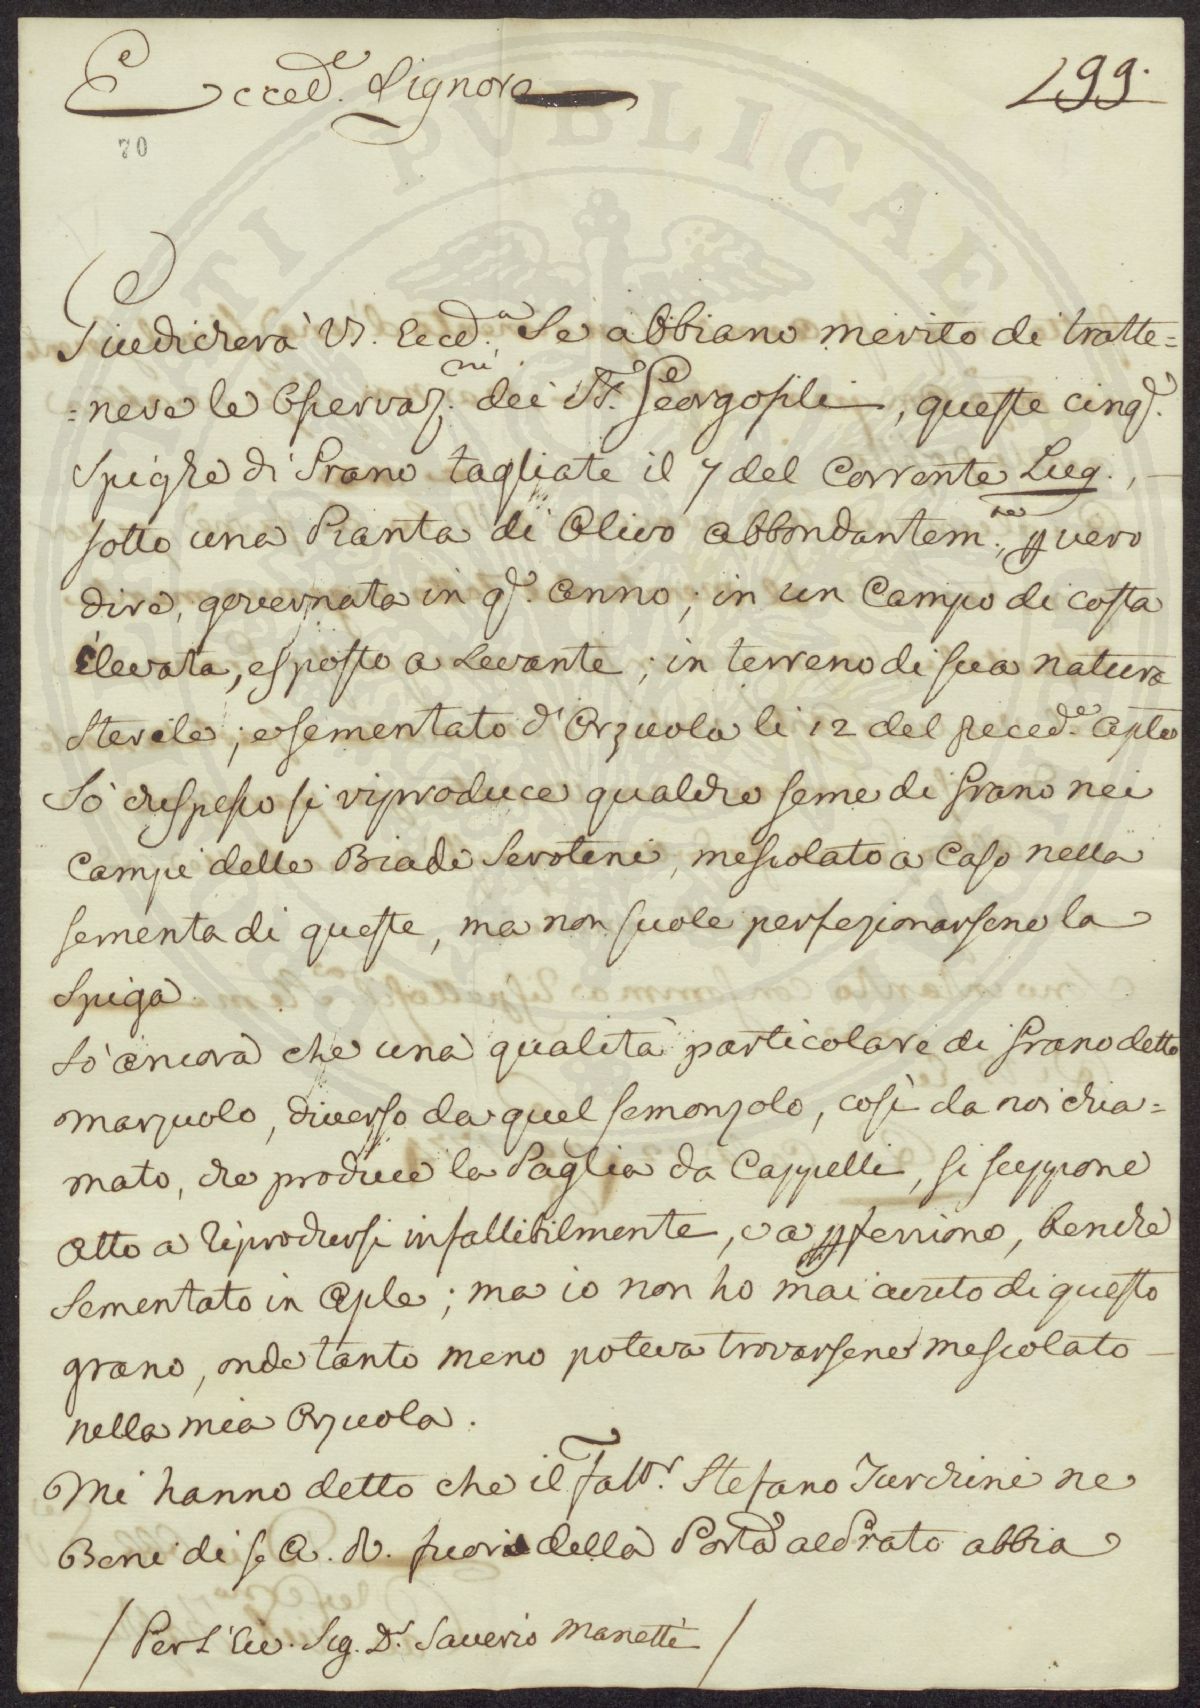 Ecced.e Signore
299.
70
Giudicherà VS. Ecced.a Se abbiano merito di tratte=
=nere le Osservaz.ni dei SS.i Georgofili, queste cinq.e
Spighe di Grano tagliate il 7 del Corrente Lug.,
sotto una Pianta di Olivo abbondantem.te, p vero
dire, governata in q.o anno; in un Campo di costa
Elevata, esposto a Levante; in terreno di sua natura
Sterile; e sementato d'Orzuola li 12 del preced.e Aple
Sò che spesso si riproduce qualche seme di Grano nei
Campi delle Biade Serotine, mescolato a Caso nella
sementa di queste, ma non suole perfezionarsene la
Spiga.
Sò ancora che una qualità particolare di Grano detto
Marzuolo, diverso da quel semonzolo, così da noi chia=
mato, che produce la Paglia da Cappelli, si suppone
atto a riprodursi infallibilmente, e a pfezzione, benche
Sementato in Aple; ma io non ho mai avuto di questo
grano, onde tanto meno poteva trovarsene mescolato
nella mia Orzuola.
Mi hanno detto che il Fatt.r Stefano Turchini ne
Beni di S. A. R. fuori della Porta al Prato abbia
/ Per l'Ecc. Sig. D.r Saverio Manetti /